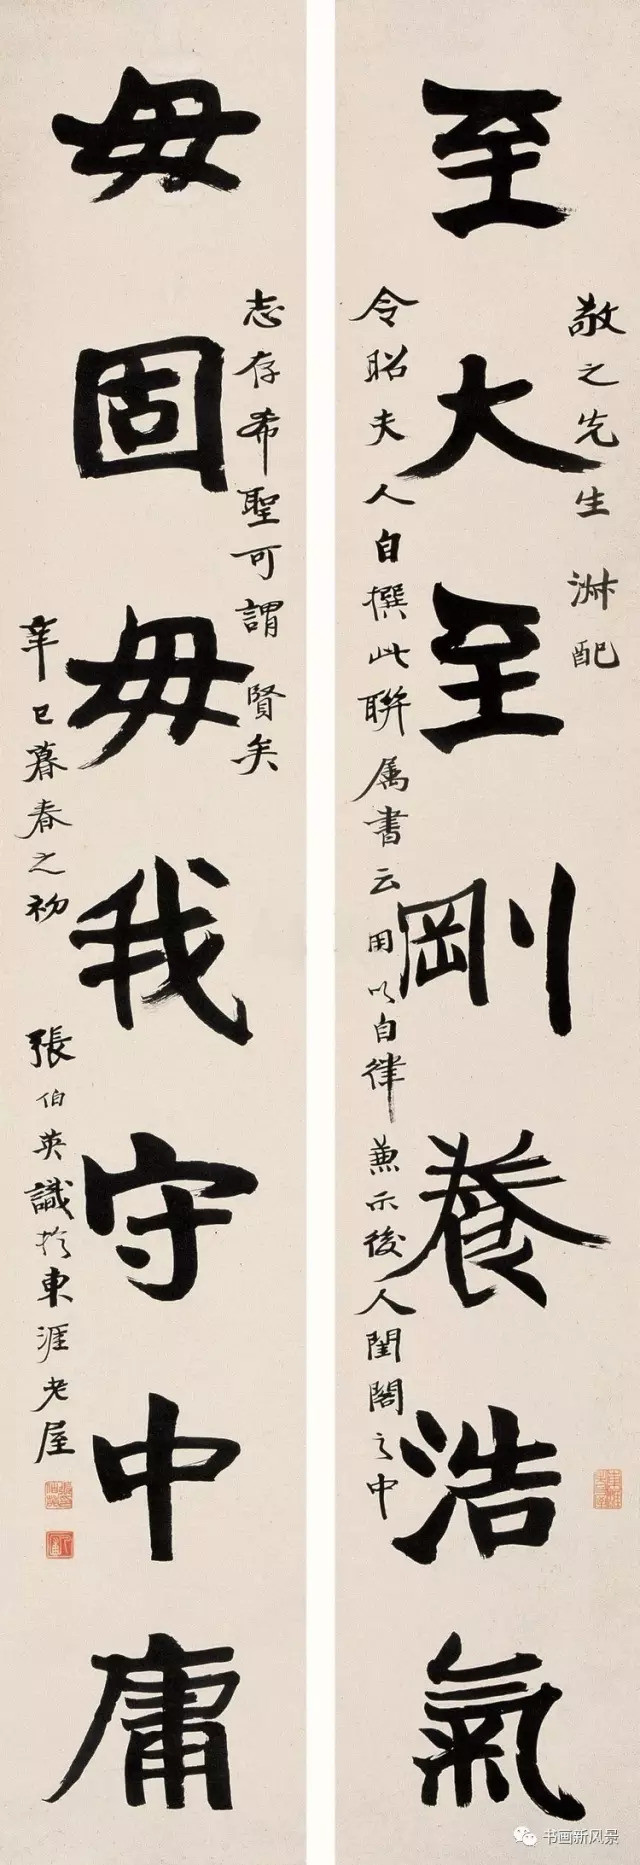 至大至剛養浩氣
敬之先生 淑配
令昭夫人自撰此聯属書云用以自律兼示後人閨閣之中
毋固毋我守中庸
志存希聖可謂賢矣
辛巳暮春之初 張伯英識於東涯老屋
书画新风景